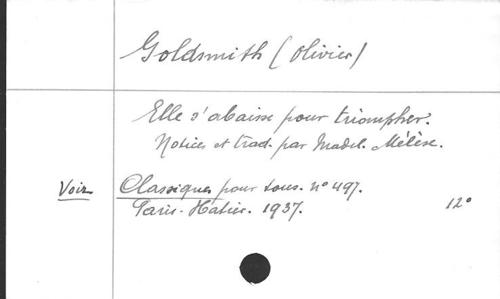 Goldsmith (Olivier)
Elle s'abaisse pour triompher.
Notices et trad. par Madel. Mélèse.
Voir Classiques pour tous. n° 497.
Paris. Hatier. 1937. 12°